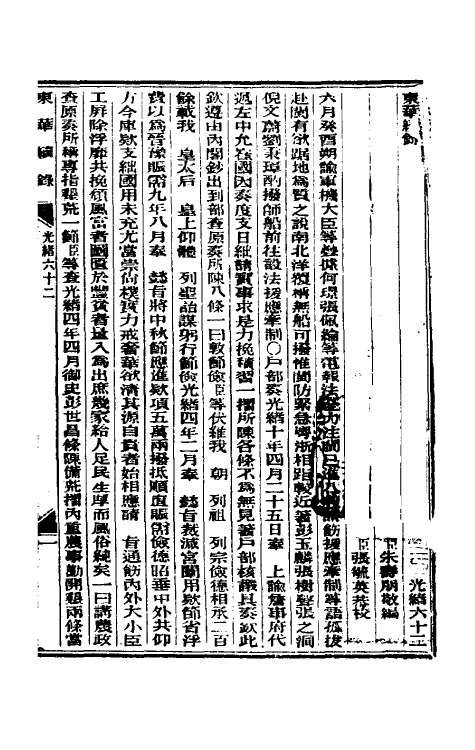 東華續錄
光緒六十二
臣朱壽朋敬編
臣張毓英恭校
六月癸酉朔諭軍機大臣等疊據何璟張佩綸等電報法 援應牽制等語孤拔
赴閩有欲踞地為質之說南北洋覆稱無船可撥惟閩防緊急粵浙相距較近著彭玉麟張樹聲張之洞
倪文蔚劉秉璋酌撥師船前往設法援應牽制〇戶部奏光緒十年四月二十五日奉 上諭詹事府代
遞左中允崔國因奏度支日絀請實事求是力挽積習一摺所陳各條不為無見著戶部核議具奏欽此
欽遵由內閣鈔出到部查原奏所陳八條一曰敦節儉臣等伏維我 朝 列祖 列宗儉德相承二百
餘載我 皇太后 皇上仰體 列聖詒謀躬行節儉光緒四年二月奉 懿旨裁減宮闈用款節省浮
費以為晉豫賑需九年八月奉 懿旨將中秋節應進款項五萬兩撥抵順直賑需儉德昭垂中外共仰
方今庫款支絀國用未充尤當崇尚樸實力戒奢華欲清其源自貴者始相應請 旨通飭內外大小臣
工屏除浮靡共挽頹風富者圖匱於豐貧者量入為出庶幾家給人足民生厚而風俗純矣一曰講農政
查原奏所稱專指墾荒一節臣等查光緒四年四月御史彭世昌條陳備荒摺內重農事勸開墾兩條當
東華續錄
光緒六十二